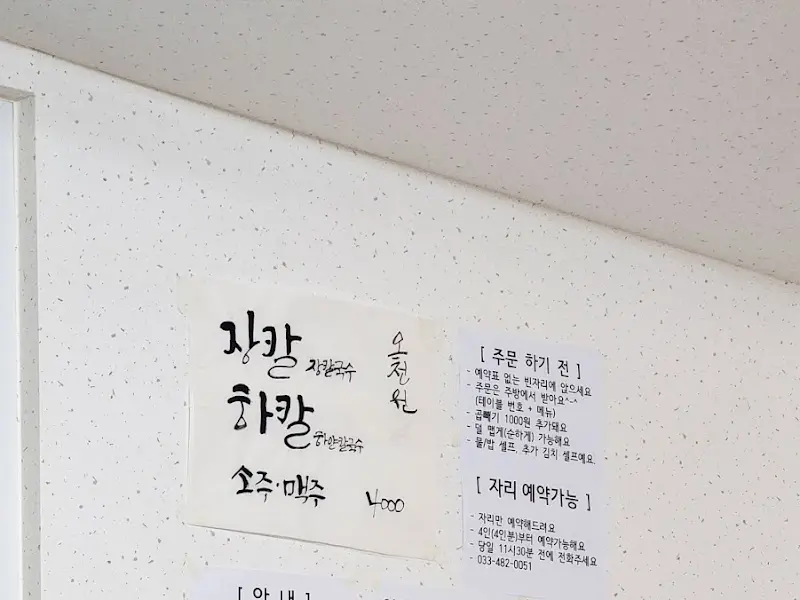 장칼 장칼국수
하칼 하얀칼국수
오천원
소주·맥주 4000
[ 주문 하기 전 ]
- 예약표 없는 빈자리에 앉으세요
- 주문은 주방에서 받아요^-^
(테이블 번호 + 메뉴)
- 곱빼기 1000원 추가돼요
- 덜 맵게(순하게) 가능해요
- 물/밥 셀프, 추가 김치 셀프예요.
[ 자리 예약가능 ]
- 자리만 예약해드려요
- 4인(4인분)부터 예약가능해요
- 당일 11시30분 전에 전화주세요
- 033-482-0051
[ 안 내 ]